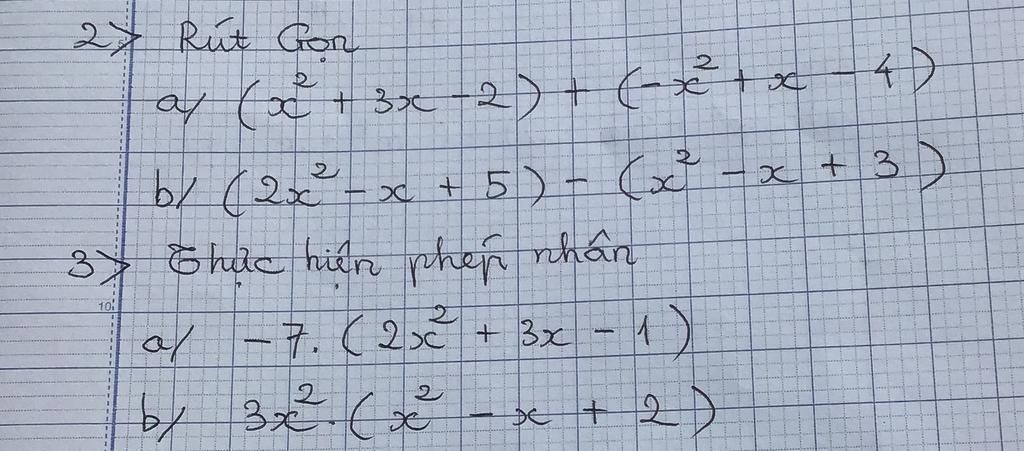 2> Rút Gọn
a/ (x² + 3x - 2) + (-x² + x - 4)
b/ (2x² - x + 5) - (x² - x + 3)
3> Thực hiện phép nhân
10
a/ -7. (2x² + 3x - 1)
b/ 3x². (x² - x + 2)